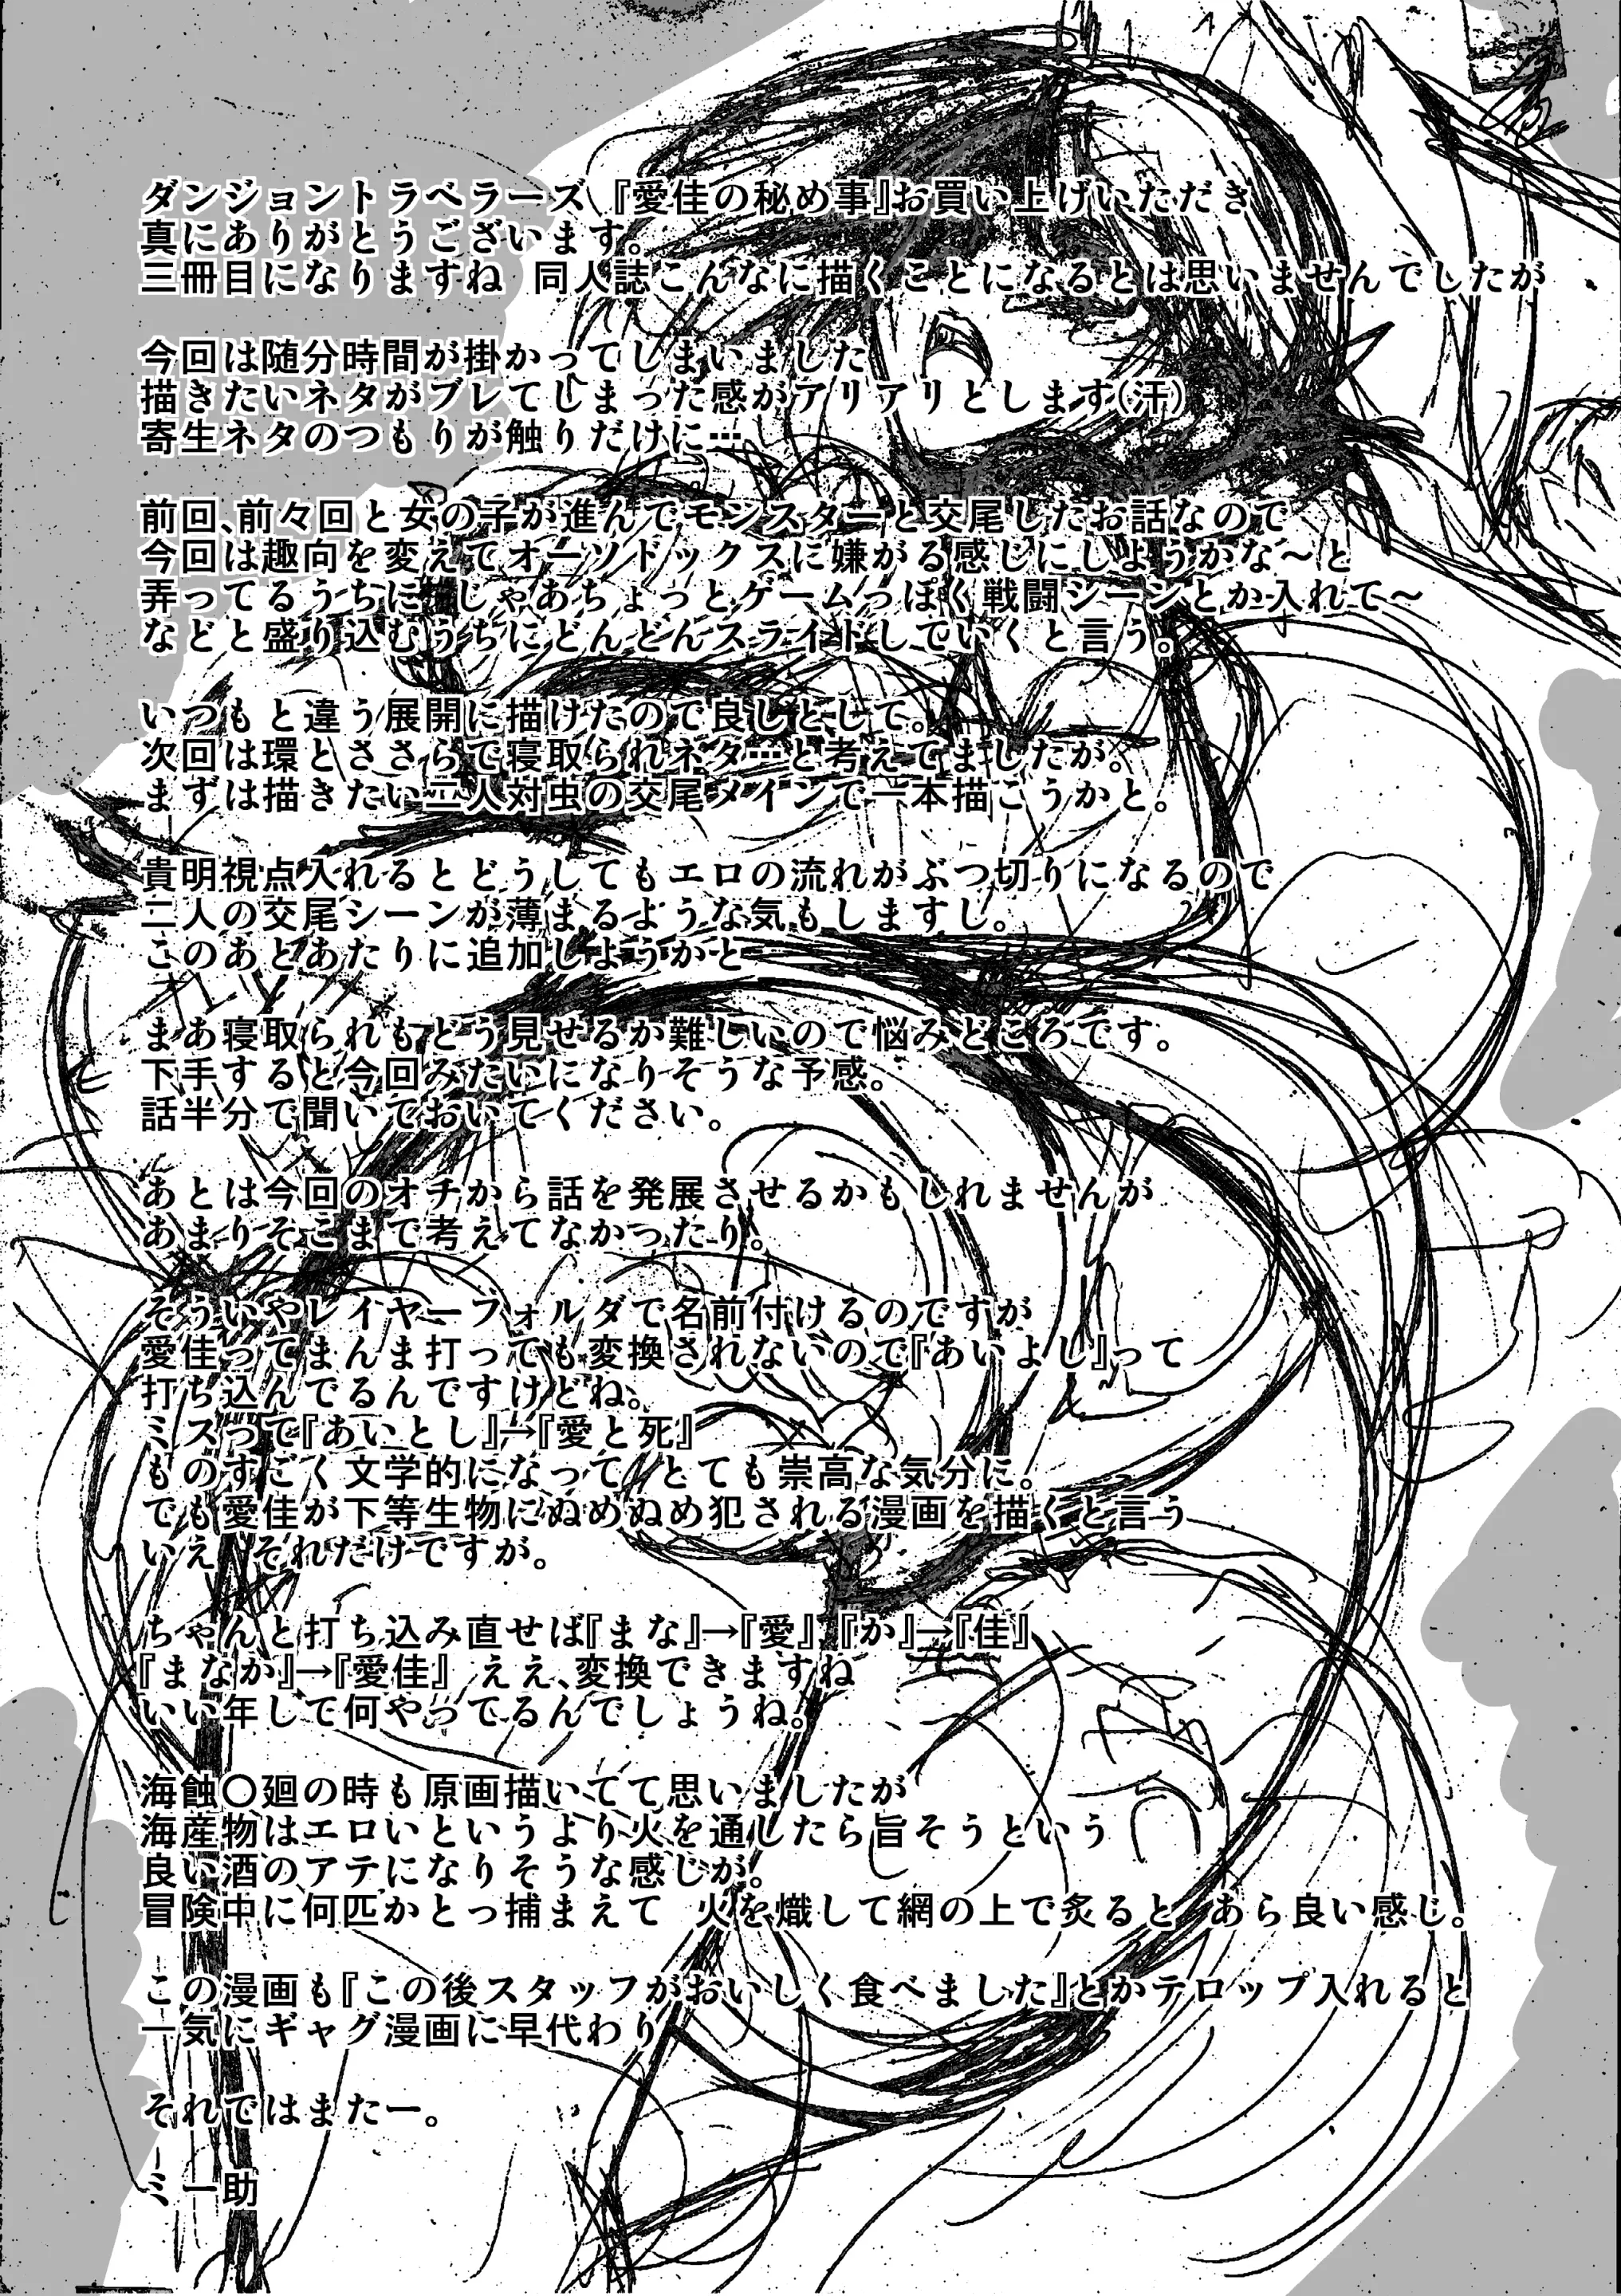 ダンジョントラベラーズ 『愛佳の秘め事』お買い上げいただき
真にありがとうございます。
三冊目になりますね 同人誌こんなに描くことになるとは思いませんでしたが
今回は随分時間が掛かってしまいました
描きたいネタがブレてしまった感がアリアリとします(汗)
寄生ネタのつもりが触りだけに…
前回、前々回と女の子が進んでモンスターと交尾したお話なので
今回は趣向を変えてオーソドックスに嫌がる感じにしようかな～と
弄ってるうちに じゃあちょっとゲームっぽく戦闘シーンとか入れて～
などと盛り込むうちにどんどんスライドしていくと言う。
いつもと違う展開に描けたので良しとして。
次回は環とささらで寝取られネタ…と考えてましたが。
まずは描きたい二人対虫の交尾メインで一本描こうかと。
貴明視点入れるとどうしてもエロの流れがぶつ切りになるので
二人の交尾シーンが薄まるような気もしますし。
このあとあたりに追加しようかと
まあ寝取られもどう見せるか難しいので悩みどころです。
下手すると今回みたいになりそうな予感。
話半分で聞いておいてください。
あとは今回のオチから話を発展させるかもしれませんが
あまりそこまで考えてなかったり。
そういやレイヤーフォルダで名前付けるのですが
愛佳ってまんま打っても変換されないので『あいよし』って
打ち込んでるんですけどね。
ミスって『あいとし』→『愛と死』
ものすごく文学的になって とても崇高な気分に。
でも愛佳が下等生物にぬめぬめ犯される漫画を描くと言う
いえ それだけですが。
ちゃんと打ち込み直せば『まな』→『愛』『か』→『佳』
『まなか』→『愛佳』 ええ、変換できますね
いい年して何やってるんでしょうね。
海蝕〇廻の時も原画描いてて思いましたが
海産物はエロいというより火を通したら旨そうという
良い酒のアテになりそうな感じが。
冒険中に何匹かとっ捕まえて 火を熾して網の上で炙ると あら良い感じ。
この漫画も『この後スタッフがおいしく食べました』とかテロップ入れると
一気にギャグ漫画に早代わり
それではまたー。
ミー助